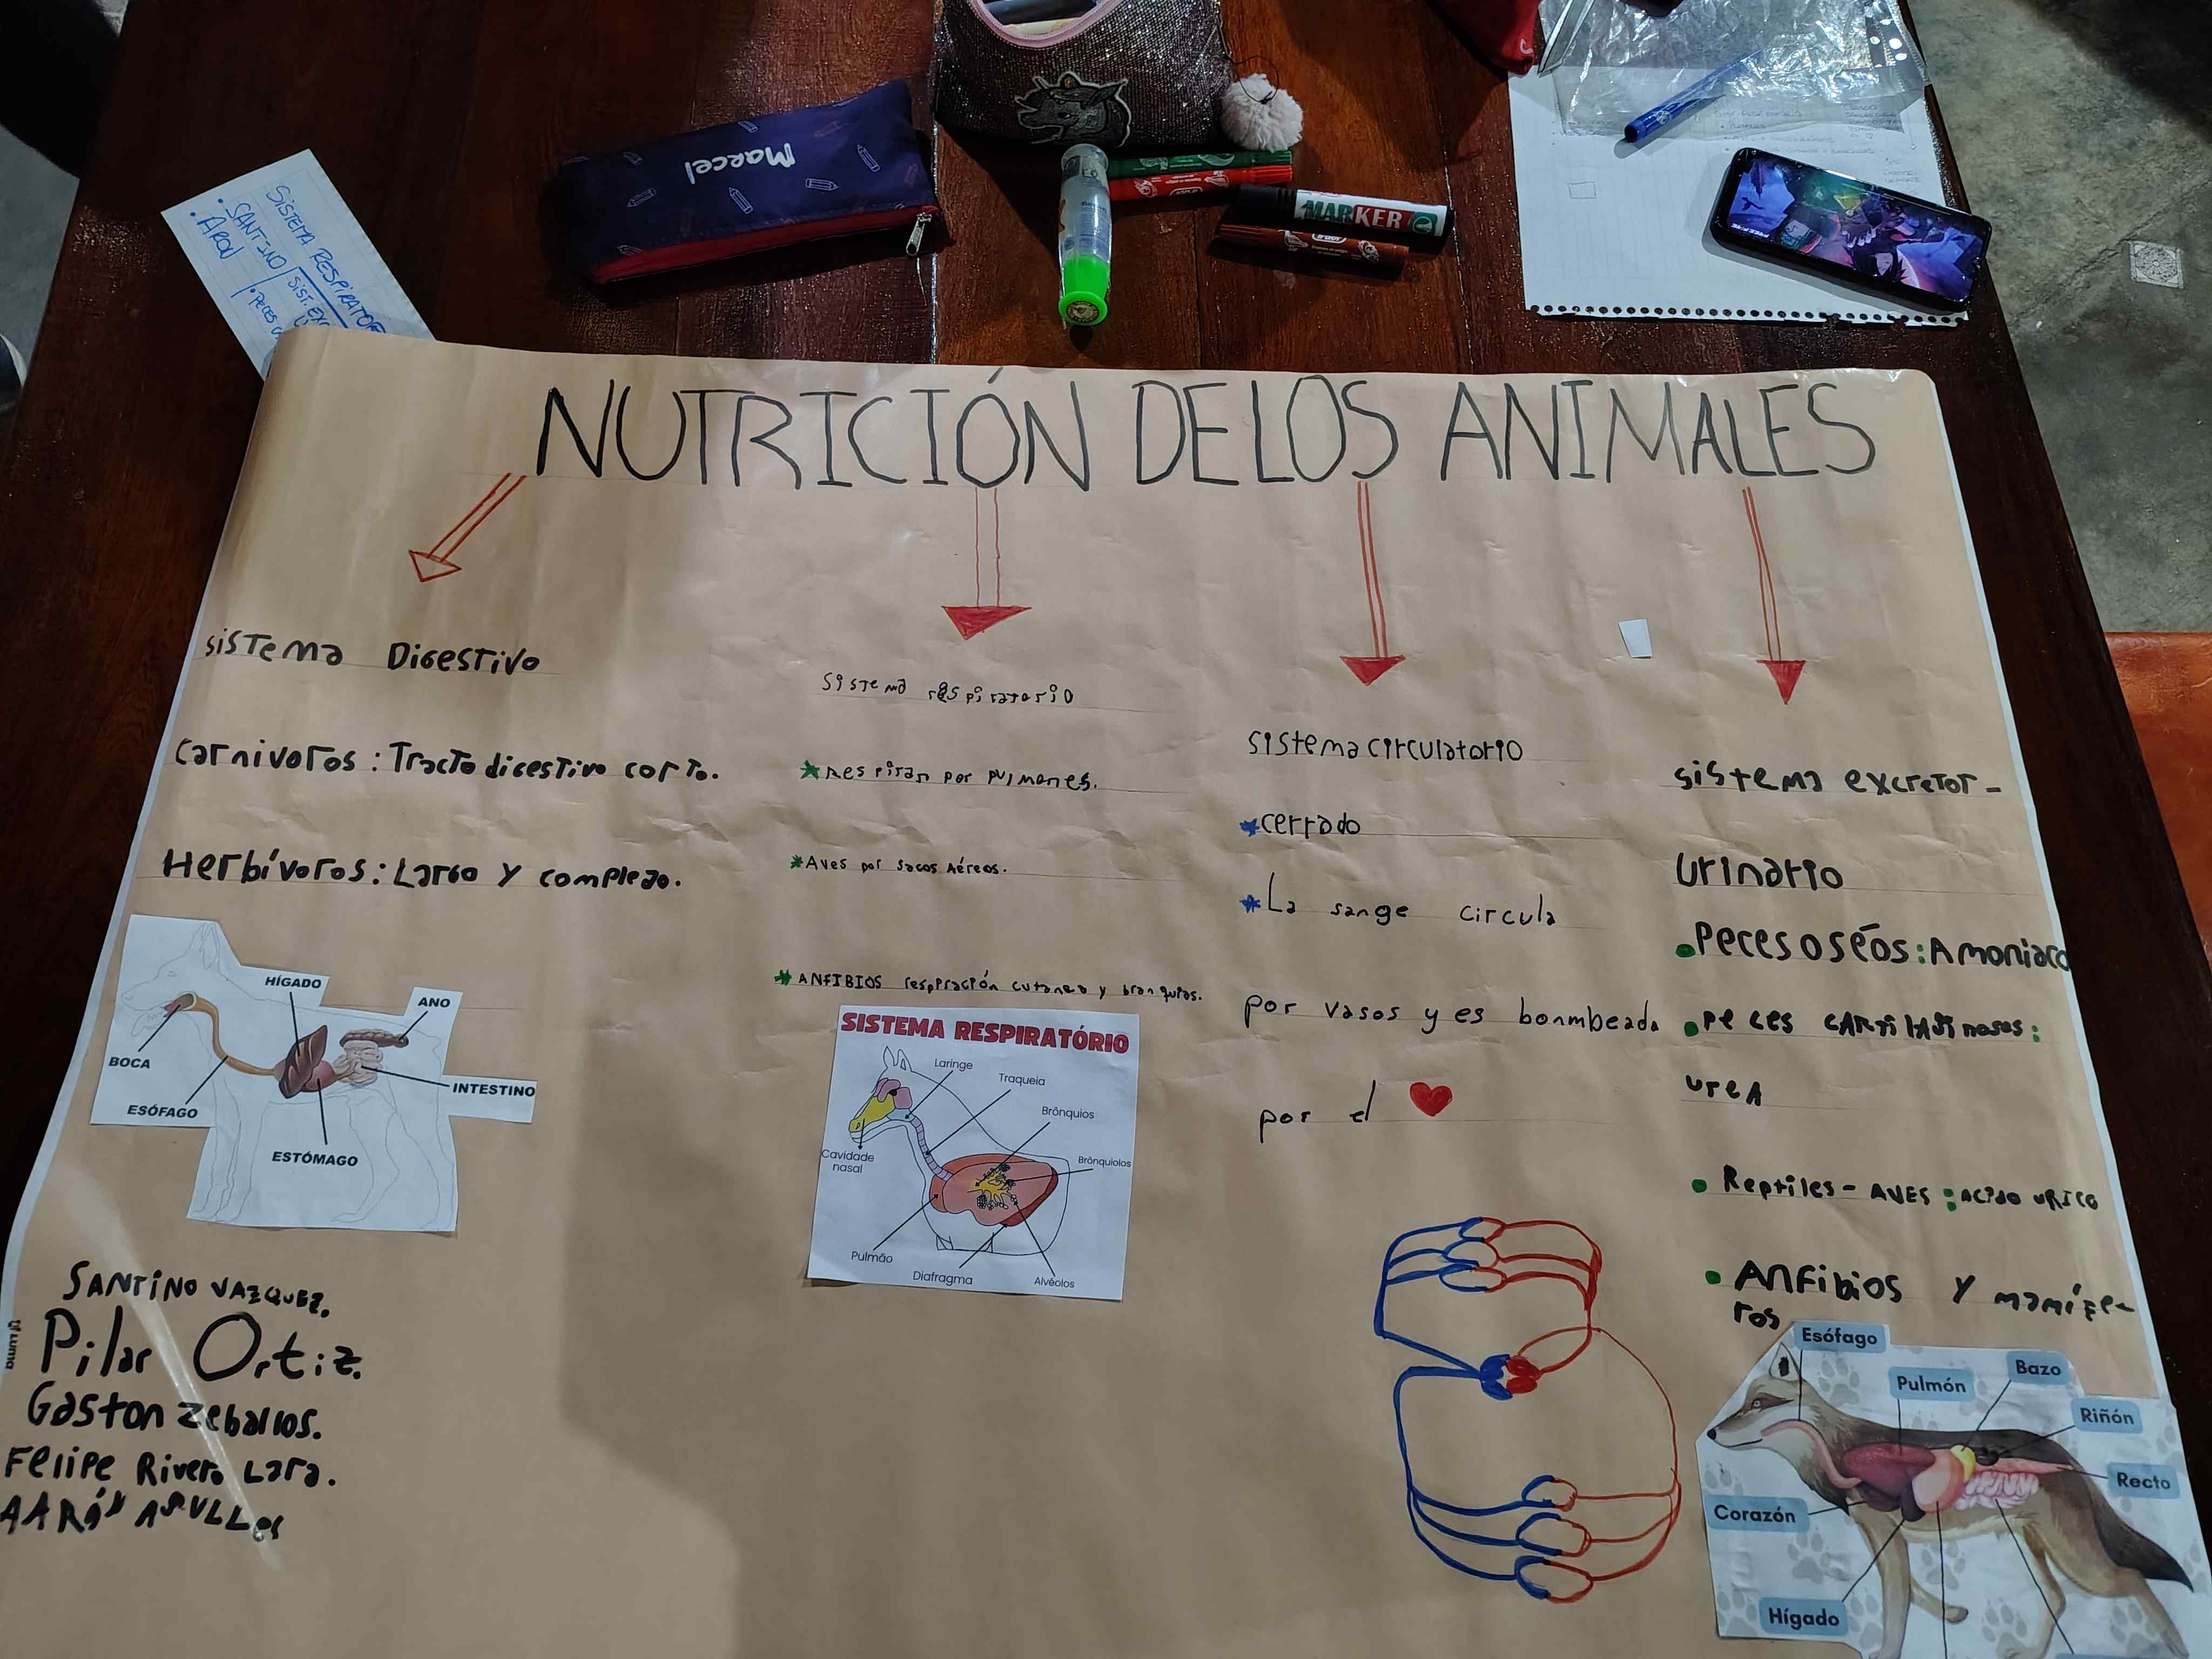 Marcel
MARKER
SISTEMA RESPIRATOR
• SANTINO
• ARON
SIST. EX
• PECES
NUTRICIÓN DE LOS ANIMALES
sistema Digestivo
Carnivoros : Tracto digestivo corto.
Herbívoros : Largo y complejo.
HÍGADO
ANO
BOCA
INTESTINO
ESÓFAGO
ESTÓMAGO
SANTINO VAZQUEZ.
Pilar Ortiz.
Gaston zeballos.
Felipe Rivero Lara.
AARÓN
luma
Sistema respiratorio
* Respiran por pulmones.
* Aves por sacos Aéreos.
* ANFIBIOS respiración cutanea y branquias.
SISTEMA RESPIRATÓRIO
Laringe
Traqueia
Brônquios
Brônquiolos
Cavidade
nasal
Pulmão
Diafragma
Alvéolos
sistema circulatorio
* cerrado
* La sange circula
por vasos y es bonmbeada
por el ❤
sistema excretor -
urinario
• Peces oseós : Amoniaco
• peces CARTilAginosos :
ureA
• Reptiles - AVES : ACido uRico
• ANFibios y mamífe-
ros
Esófago
Pulmón
Bazo
Riñón
Recto
Corazón
Hígado